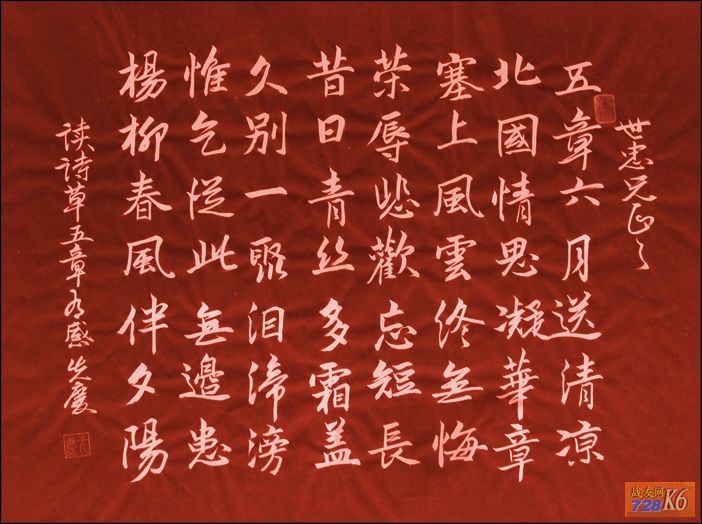 世忠兄正之
五章六月送清凉
北國情思凝華章
塞上風雲終无悔
荣辱悲歡忘短長
昔日青丝多霜盖
久别一聚泪渧滂
惟乞從此無邊患
楊柳春風伴夕陽
读诗草五章有感 先慶
战友网
728 K6